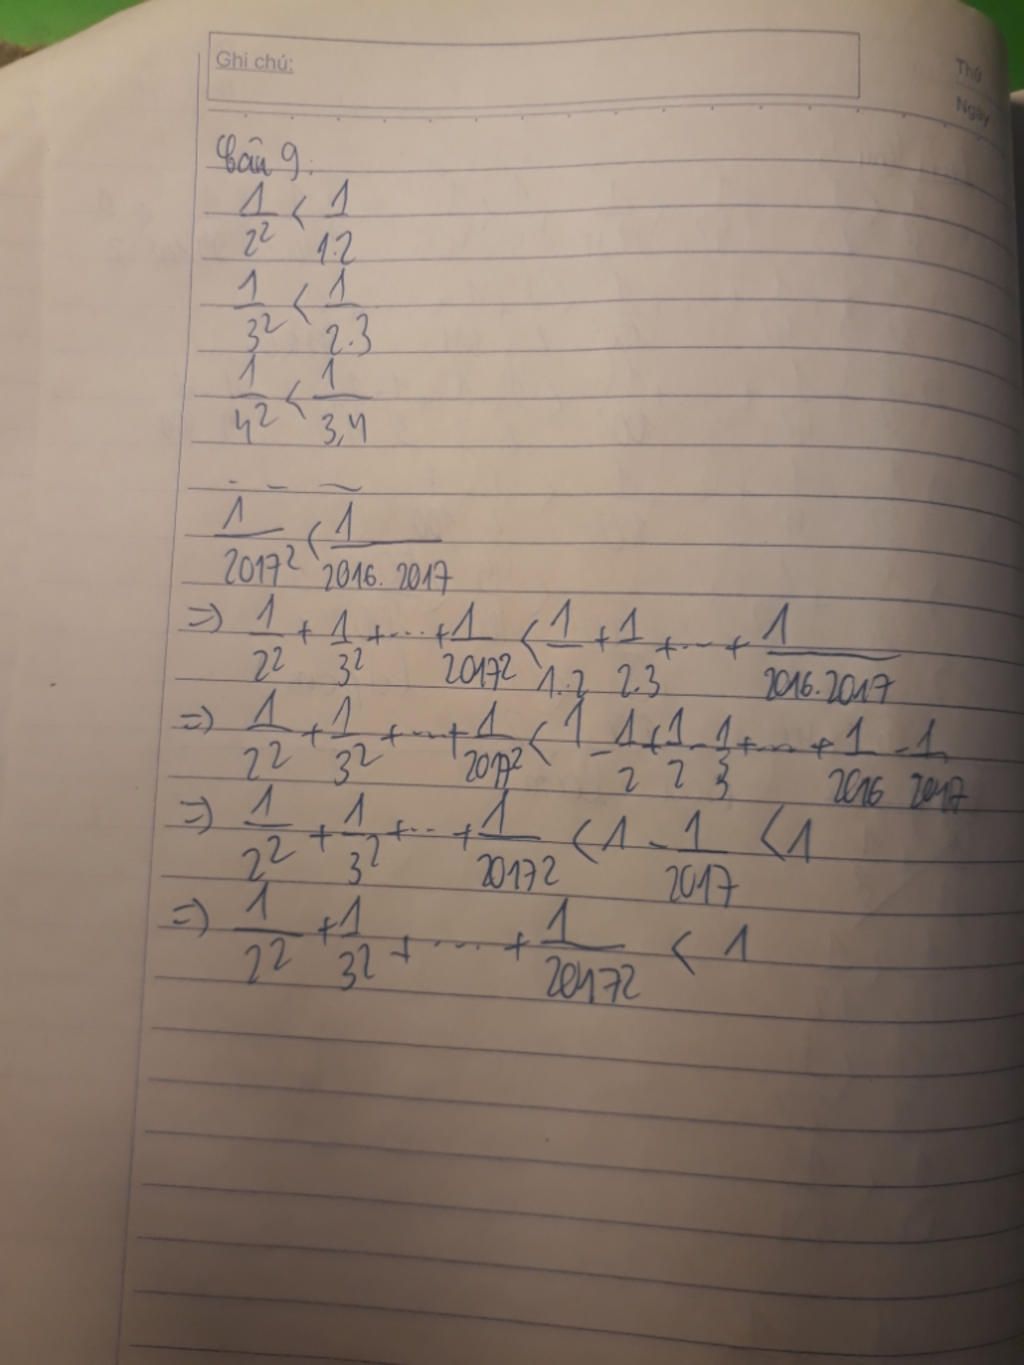 Ghi chú:
Thứ
Ngày
Câu 9:
1/2² < 1/1.2
1/3² < 1/2.3
1/4² < 1/3,4
- - -
1/2017² < 1/2016.2017
=) 1/2² + 1/3² + ... + 1/2017² < 1/1.2 + 1/2.3 + ... + 1/2016.2017
=) 1/2² + 1/3² + ... + 1/2017² < 1 - 1/2 + 1/2 - 1/3 + ... + 1/2016 - 1/2017
=) 1/2² + 1/3² + ... + 1/2017² < 1 - 1/2017 < 1
=) 1/2² + 1/3² + .... + 1/2017² < 1